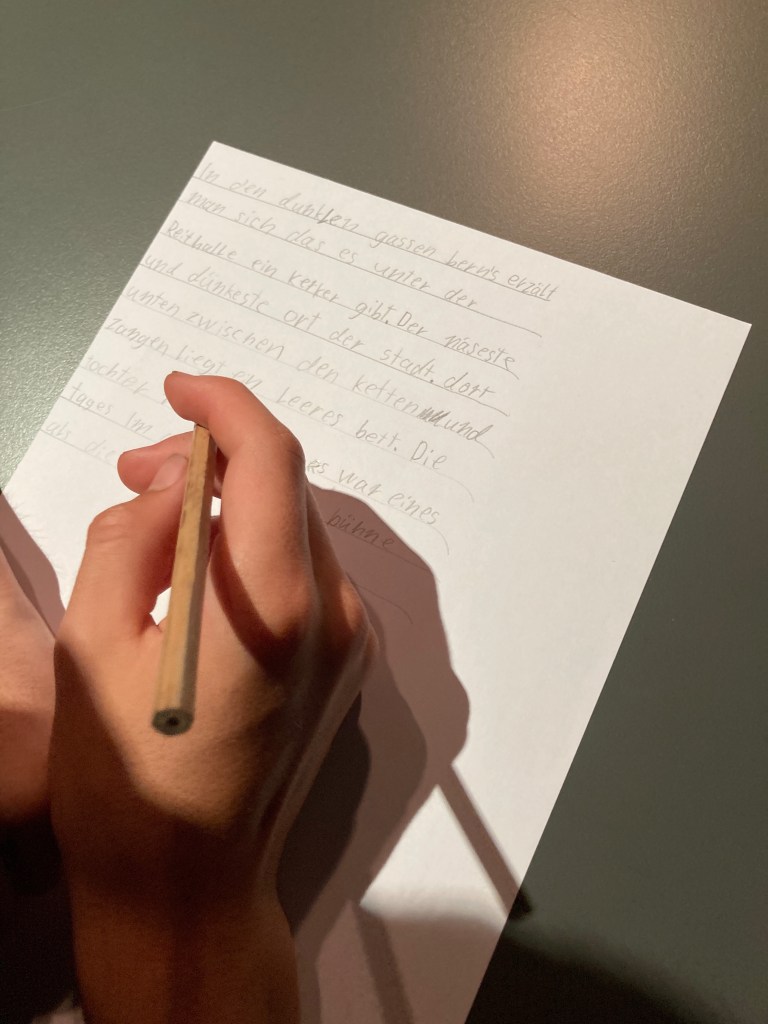 In den dunklen gassen bern's erzält
man sich das es unter der
Reithalle ein kerker gibt. Der näseste
und dünkeste ort der stadt. dort
unten zwischen den ketten und
Zangen liegt ein leeres bett. Die
tochter es war eines
tages im bühne
ab die